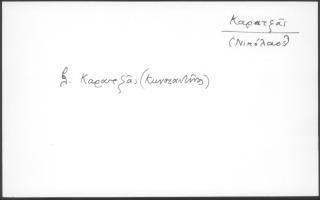 Καρατζᾶς
(Νικόλαος)
βλ. Καρατζᾶς (Κωνσταντῖνος)